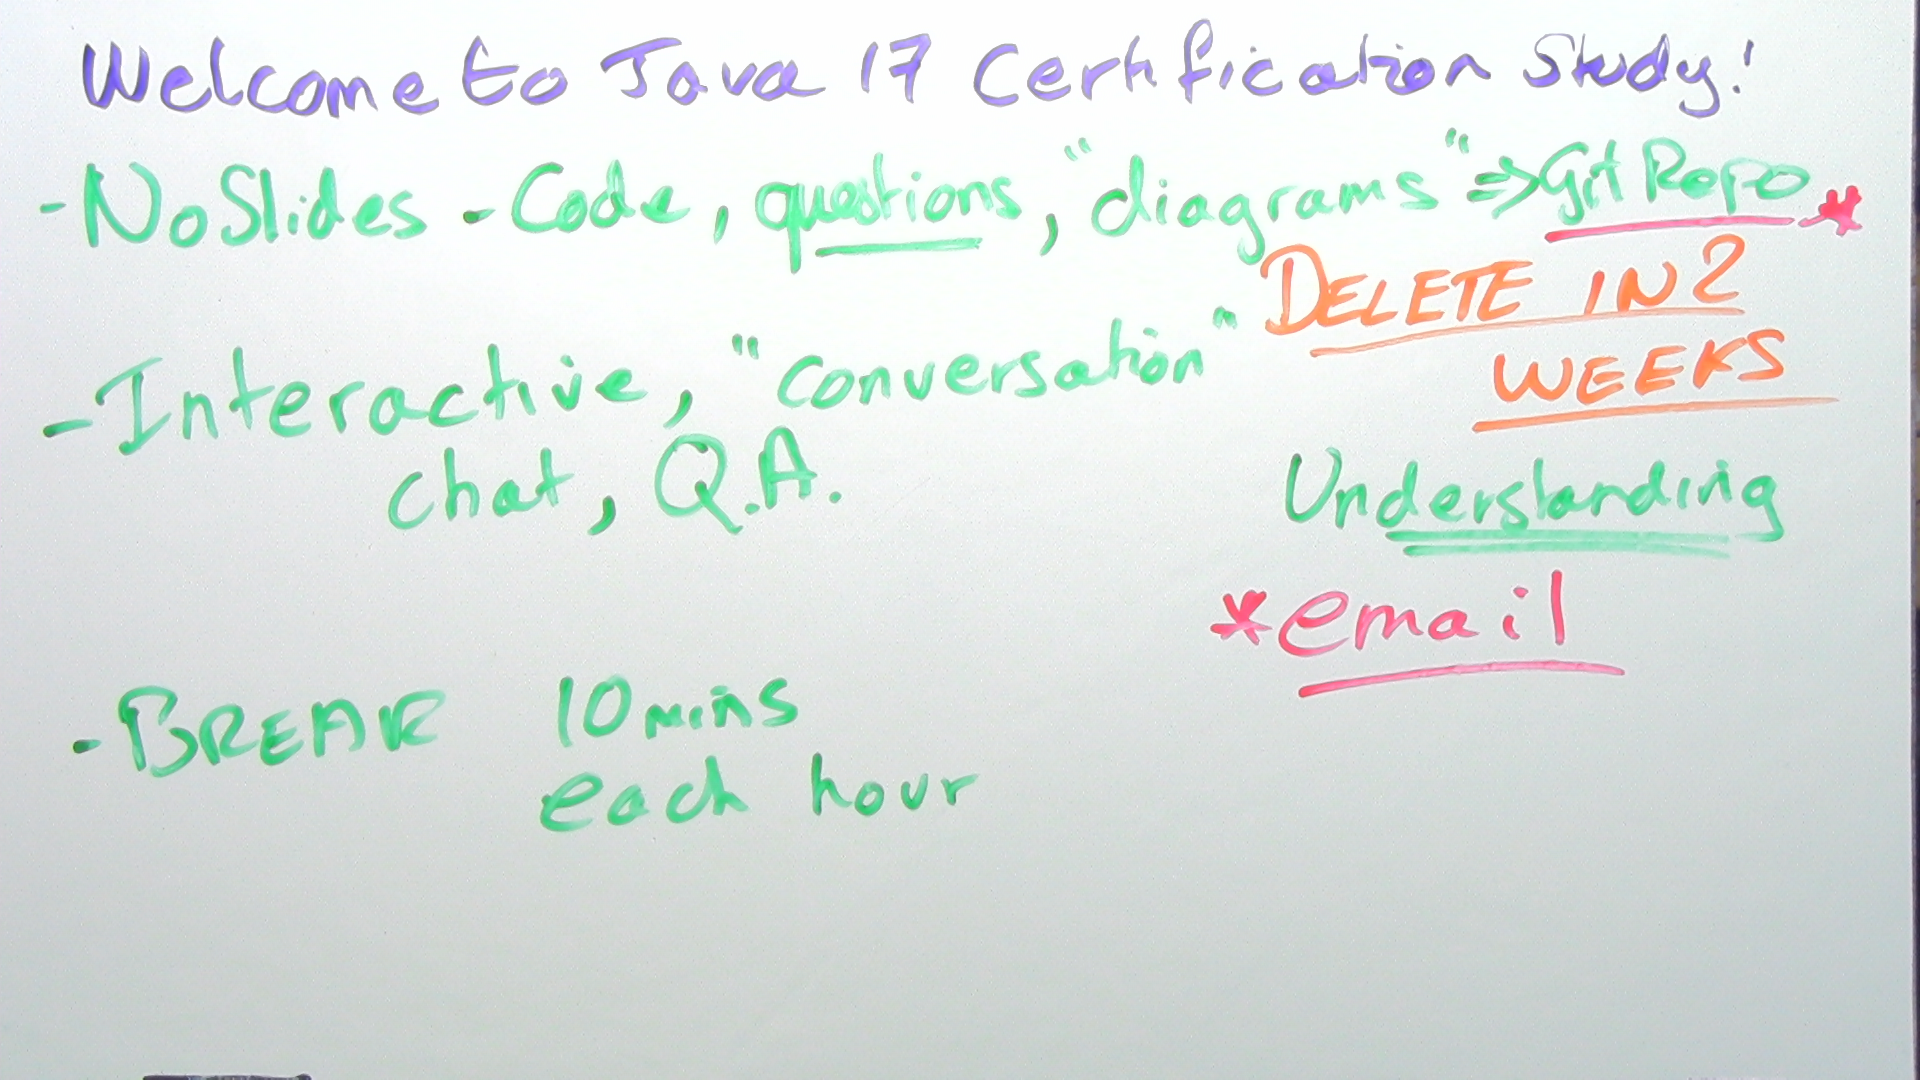 Welcome to Java 17 Certification Study!
- No Slides - Code, questions, "diagrams" => Git Repo *
DELETE IN 2
WEEKS
- Interactive, "conversation"
chat, Q.A.
Understanding
* email
- BREAK 10 mins
each hour